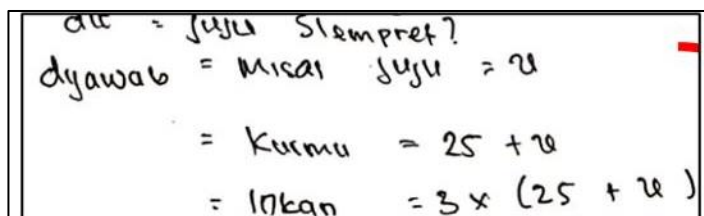 dit = Juju Slempret?
dijawab = Misal Juju = x
= Kurma = 25 + x
= Inkan = 3 x (25 + x)